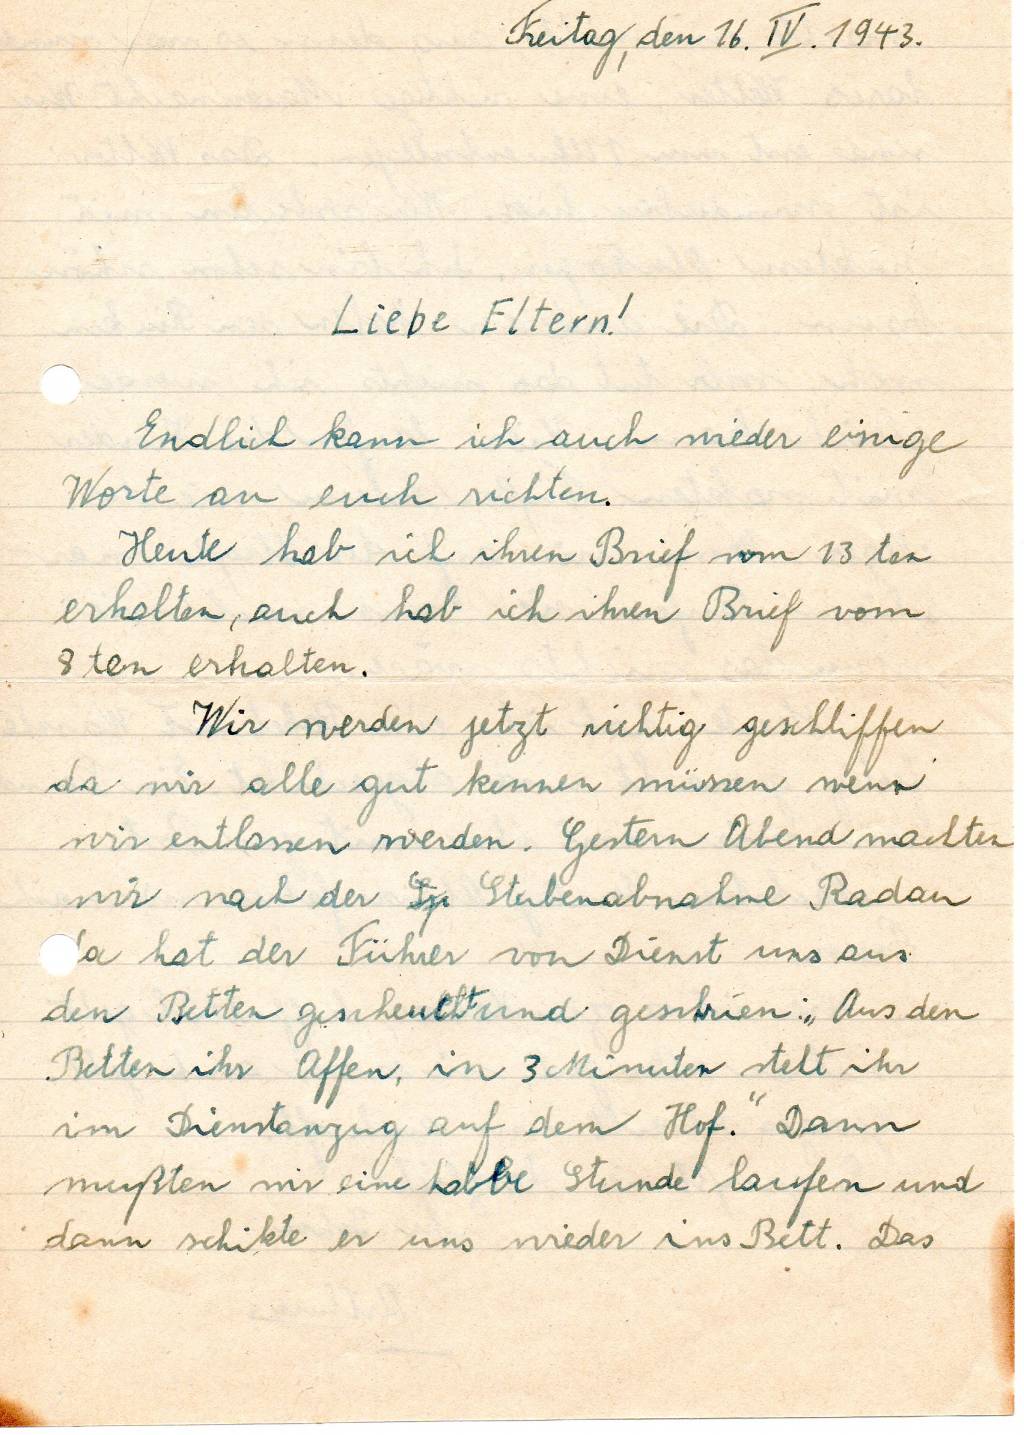 Freitag, den 16. IV. 1943.
Liebe Eltern!
Endlich kann ich auch wieder einige
Worte an euch richten.
Heute hab ich ihren Brief vom 13 ten
erhalten, auch hab ich ihren Brief vom
8 ten erhalten.
Wir werden jetzt richtig geschliffen
da wir alle gut kennen müssen wenn
wir entlassen werden. Gestern Abend machten
wir nach der Stubenabnahme Radau
da hat der Führer von Dienst uns aus
den Betten gescheucht und geschrien: „Aus den
Betten ihr Affen, in 3 Minuten stelt ihr
im Dienstanzug auf dem Hof.“ Dann
mußten wir eine halbe Stunde laufen und
dann schikte er uns wieder ins Bett. Das